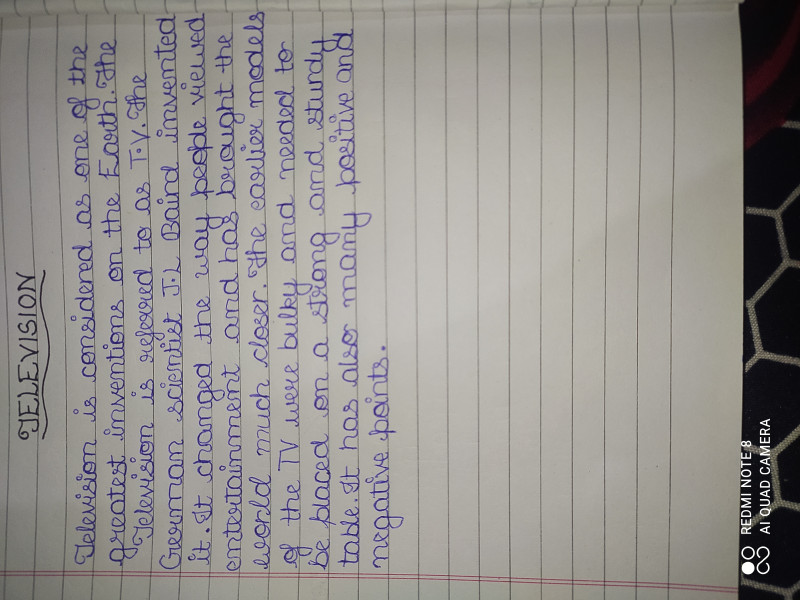 TELEVISION
Television is considered as one of the
greatest inventions on the Earth. The
Television is referred to as T.V. The
German scientist J.L Baird invented
it. It changed the way people viewed
entertainment and has brought the
world much closer. The earlier models
of the TV were bulky and needed to
be placed on a strong and sturdy
table. It has also many positive and
negative points.
REDMI NOTE 8
AI QUAD CAMERA